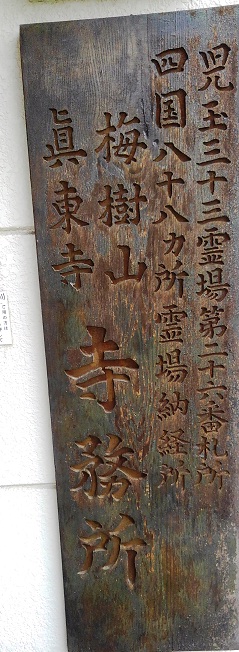 児玉三十三霊場第二十六番札所
四国八十八カ所霊場納経所
梅樹山
眞東寺
寺務所